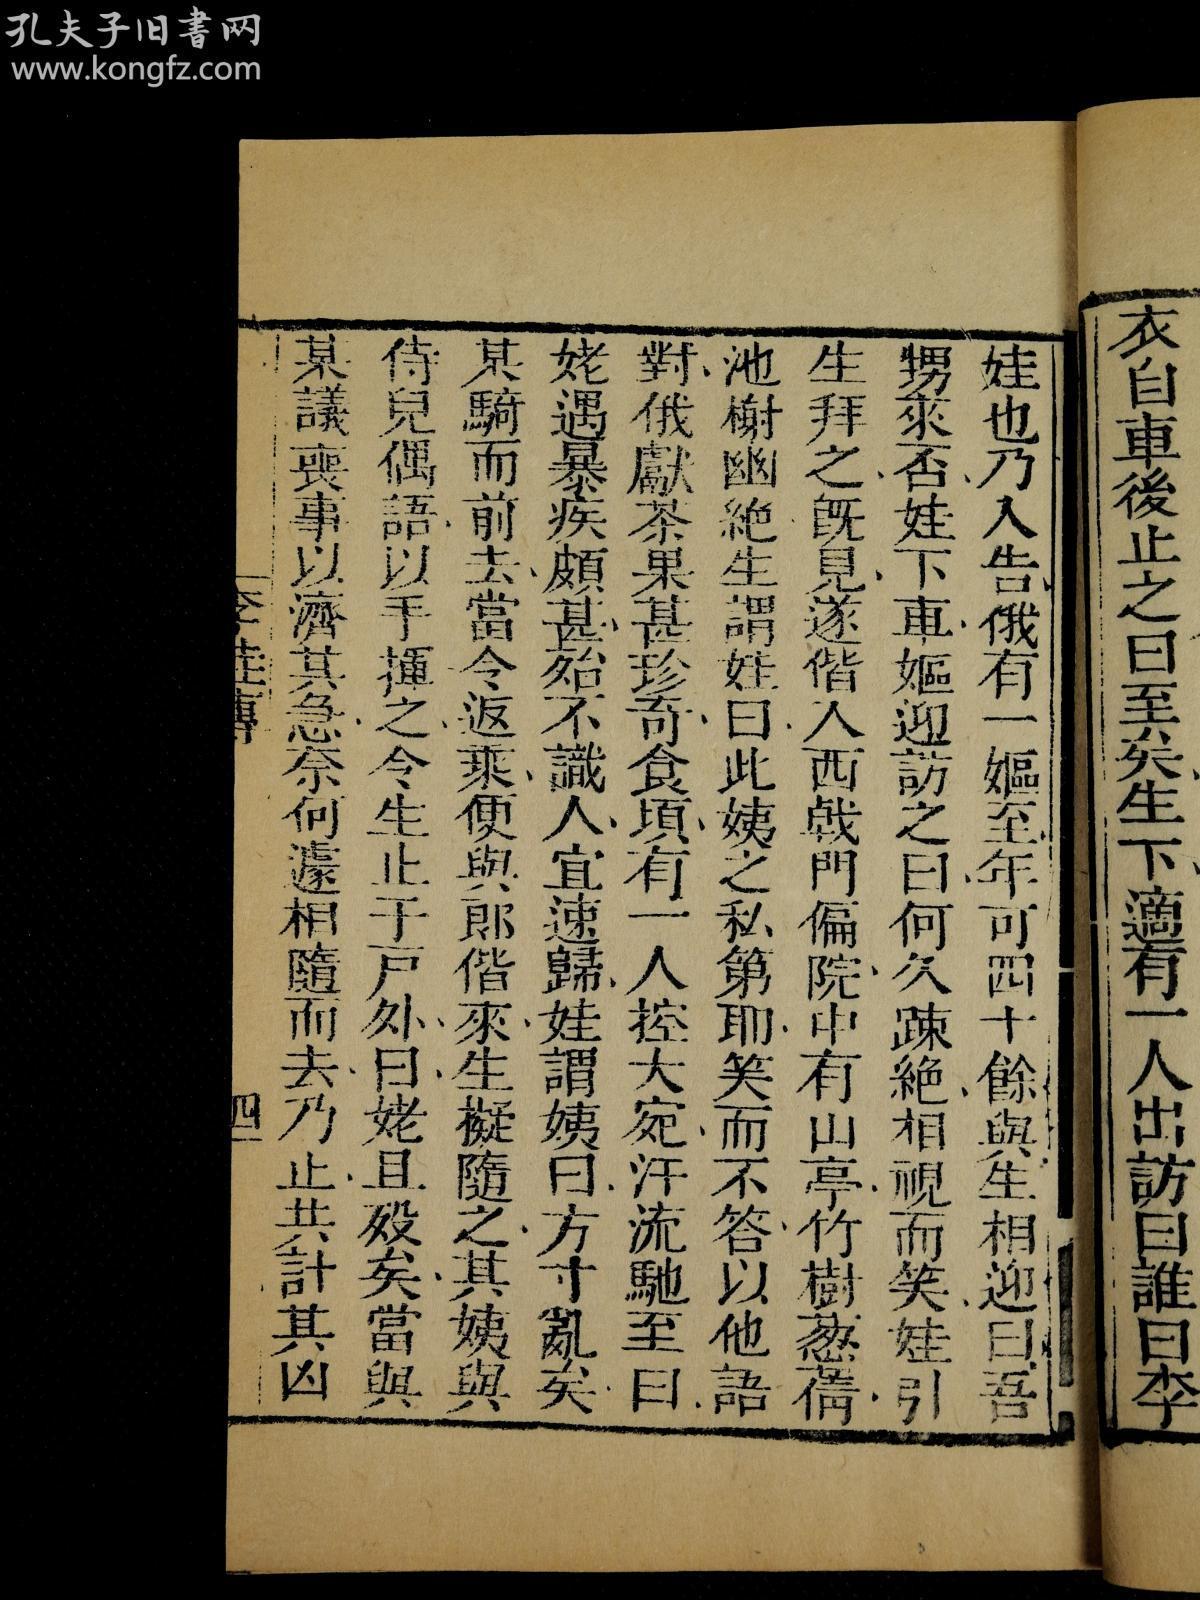 孔夫子旧書网
www.kongfz.com
衣自車後止之曰至矣生下適有一人出訪曰誰曰李
娃也乃入告俄有一嫗至年可四十餘與生相迎曰吾
甥來否娃下車嫗迎訪之曰何久疎絶相視而笑娃引
生拜之既見遂偕入西戟門偏院中有山亭竹樹葱蒨
池榭幽絶生謂娃曰此姨之私第耶笑而不答以他語
對俄獻茶果甚珍奇食頃有一人控大宛汗流馳至曰
姥遇暴疾頗甚殆不識人宜速歸娃謂姨曰方寸亂矣
某騎而前去當令返乘便與郎偕來生擬隨之其姨與
侍兒偶語以手揮之令生止于戸外曰姥且殁矣當與
某議喪事以濟其急奈何遽相隨而去乃止共計其凶
李娃傳
四